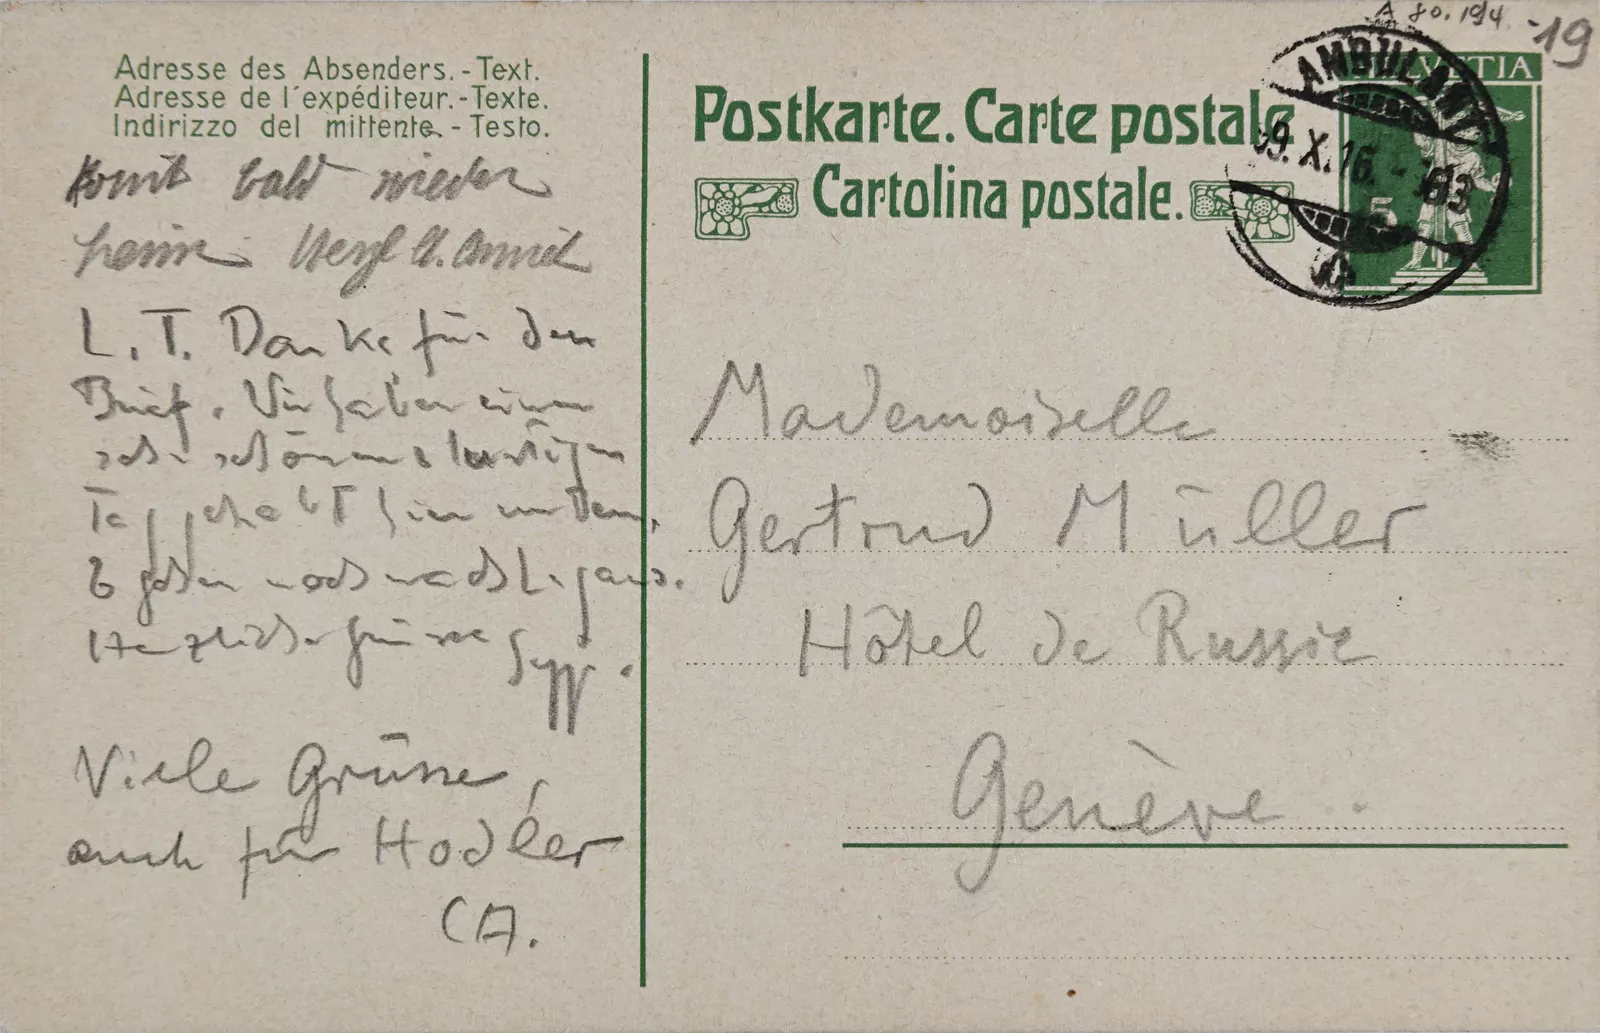 A 80. 1914 -19
Adresse des Absenders. - Text.
Adresse de l'expéditeur. - Texte.
Indirizzo del mittente. - Testo.
Postkarte. Carte postale
Cartolina postale.
HELVETIA
AMBULANT
9. X. 16. -
5
Komt bald wieder
heim. Herzl
L. T. Danke für den
Brief. Wir haben einen
sehr schönen & lustigen
Tag gehabt hier unten,
& gehen noch nach Lugano.
Herzliche Grüsse
Viele Grüsse,
auch für Hodler
CA.
Mademoiselle
Gertrud Müller
Hôtel de Russie
Genève.